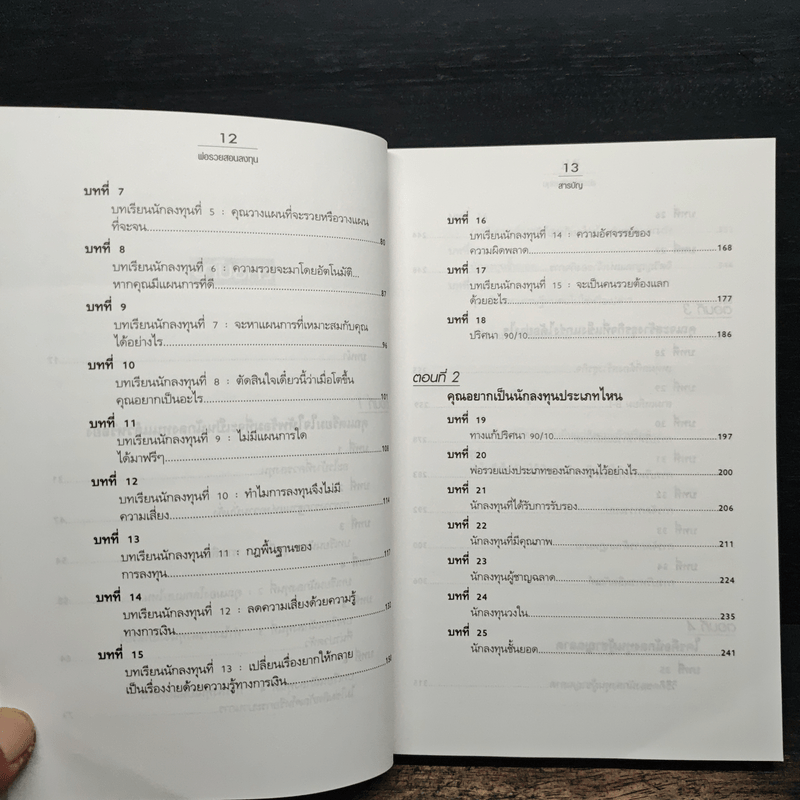 12
พ่อรวยสอนลงทุน
บทที่ 7
บทเรียนนักลงทุนที่ 5 : คุณวางแผนที่จะรวยหรือวางแผน
ที่จะจน 80
บทที่ 8
บทเรียนนักลงทุนที่ 6 : ความรวยจะมาโดยอัตโนมัติ...
หากคุณมีแผนการที่ดี 87
บทที่ 9
บทเรียนนักลงทุนที่ 7 : จะหาแผนการที่เหมาะสมกับคุณ
ได้อย่างไร 94
บทที่ 10
บทเรียนนักลงทุนที่ 8 : ตัดสินใจเดี๋ยวนี้ว่าเมื่อโตขึ้น
คุณอยากเป็นอะไร 101
บทที่ 11
บทเรียนนักลงทุนที่ 9 : ไม่มีแผนการใด
ได้มาฟรีๆ 108
บทที่ 12
บทเรียนนักลงทุนที่ 10 : ทำไมการลงทุนจึงไม่มี
ความเสี่ยง 114
บทที่ 13
บทเรียนนักลงทุนที่ 11 : กฎพื้นฐานของ
การลงทุน 117
บทที่ 14
บทเรียนนักลงทุนที่ 12 : ลดความเสี่ยงด้วยความรู้
ทางการเงิน
บทที่ 15
บทเรียนนักลงทุนที่ 13 : เปลี่ยนเรื่องยากให้กลาย
เป็นเรื่องง่ายด้วยความรู้ทางการเงิน
13
สารบัญ
บทที่ 16
บทเรียนนักลงทุนที่ 14 : ความอัศจรรย์ของ
ความผิดพลาด 168
บทที่ 17
บทเรียนนักลงทุนที่ 15 : จะเป็นคนรวยต้องแลก
ด้วยอะไร 177
บทที่ 18
ปริศนา 90/10 186
ตอนที่ 2
คุณอยากเป็นนักลงทุนประเภทไหน
บทที่ 19
ทางแก้ปริศนา 90/10 197
บทที่ 20
พ่อรวยแบ่งประเภทของนักลงทุนไว้อย่างไร 200
บทที่ 21
นักลงทุนที่ได้รับการรับรอง 206
บทที่ 22
นักลงทุนที่มีคุณภาพ 211
บทที่ 23
นักลงทุนผู้ชาญฉลาด 224
บทที่ 24
นักลงทุนวงใน 235
บทที่ 25
นักลงทุนชั้นยอด 241